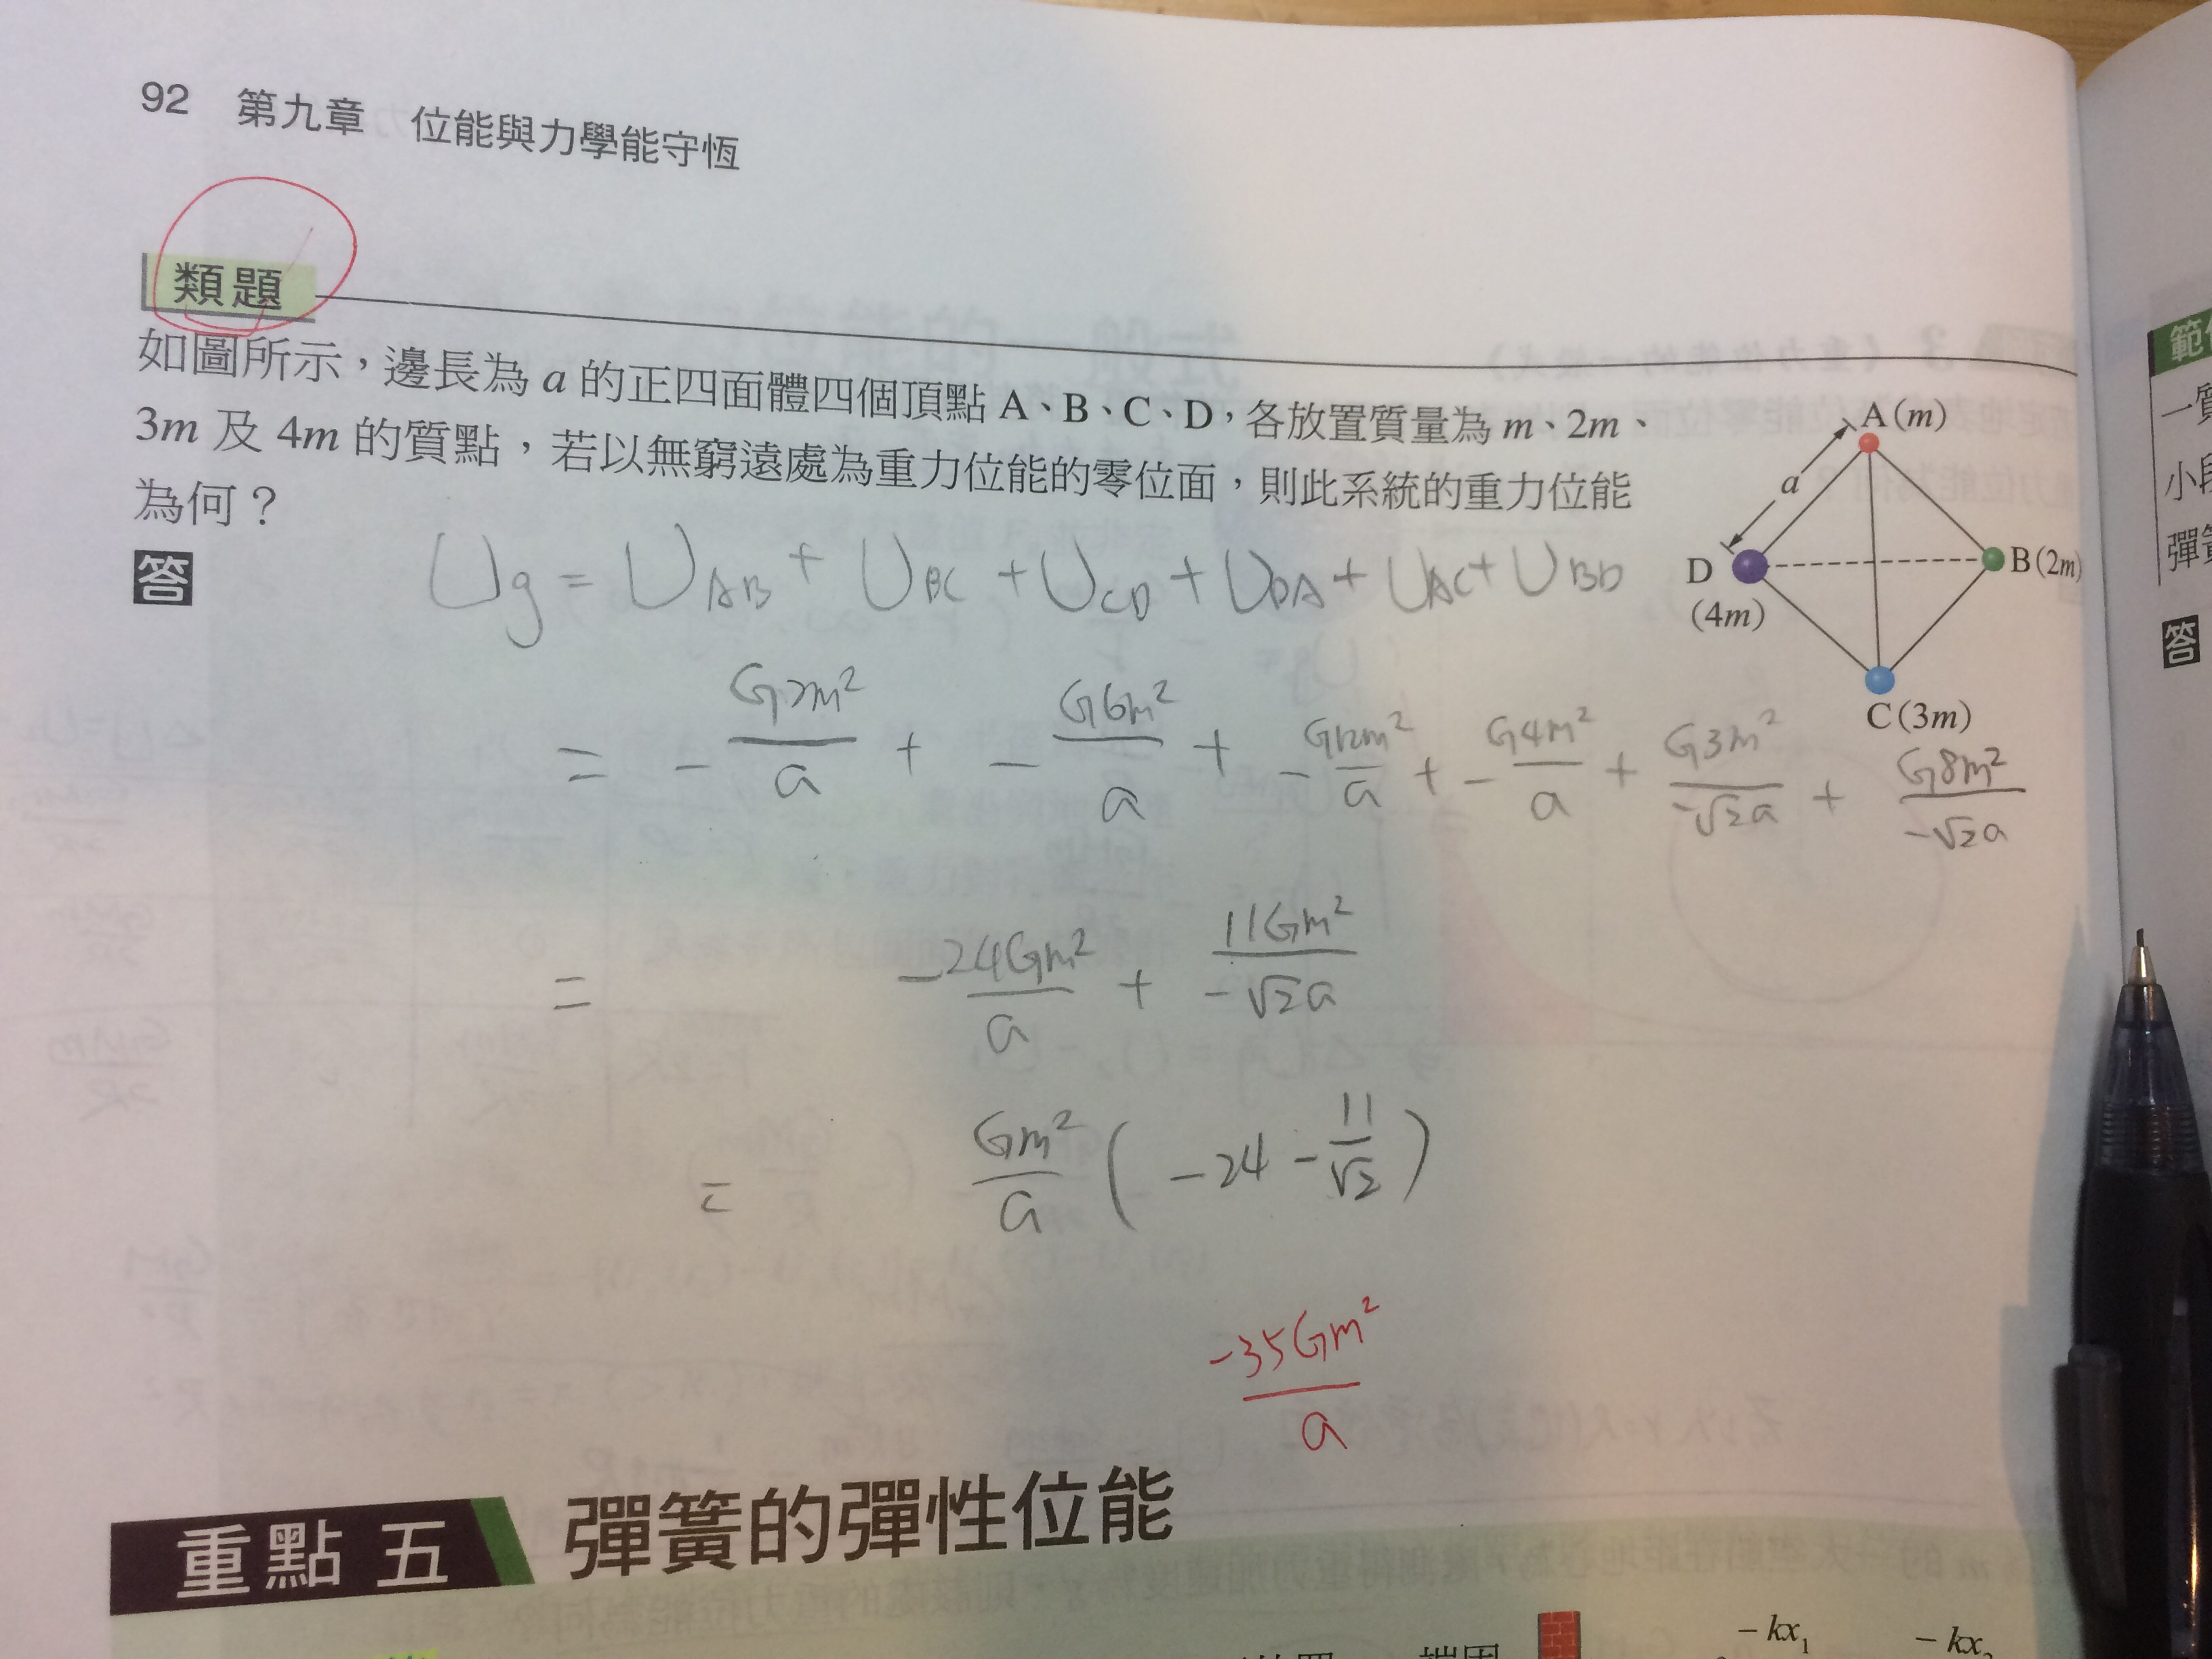 92 第九章 位能與力學能守恆
類題
如圖所示，邊長為 a 的正四面體四個頂點 A、B、C、D，各放置質量為 m、2m、
3m 及 4m 的質點，若以無窮遠處為重力位能的零位面，則此系統的重力位能
為何？
A(m)
a
D
(4m)
B(2m)
C(3m)
答
Ug = U_AB + U_BC + U_CD + U_DA + U_AC + U_BD
= - G2m²/a + - G6m²/a + - G12m²/a + - G4m²/a + G3m²/-√2a + G8m²/-√2a
= -24Gm²/a + 11Gm²/-√2a
= Gm²/a ( -24 - 11/√2 )
-35Gm²/a
重點 五 彈簧的彈性位能
-kx₁
-kx₂
一質
小段
彈簧
答